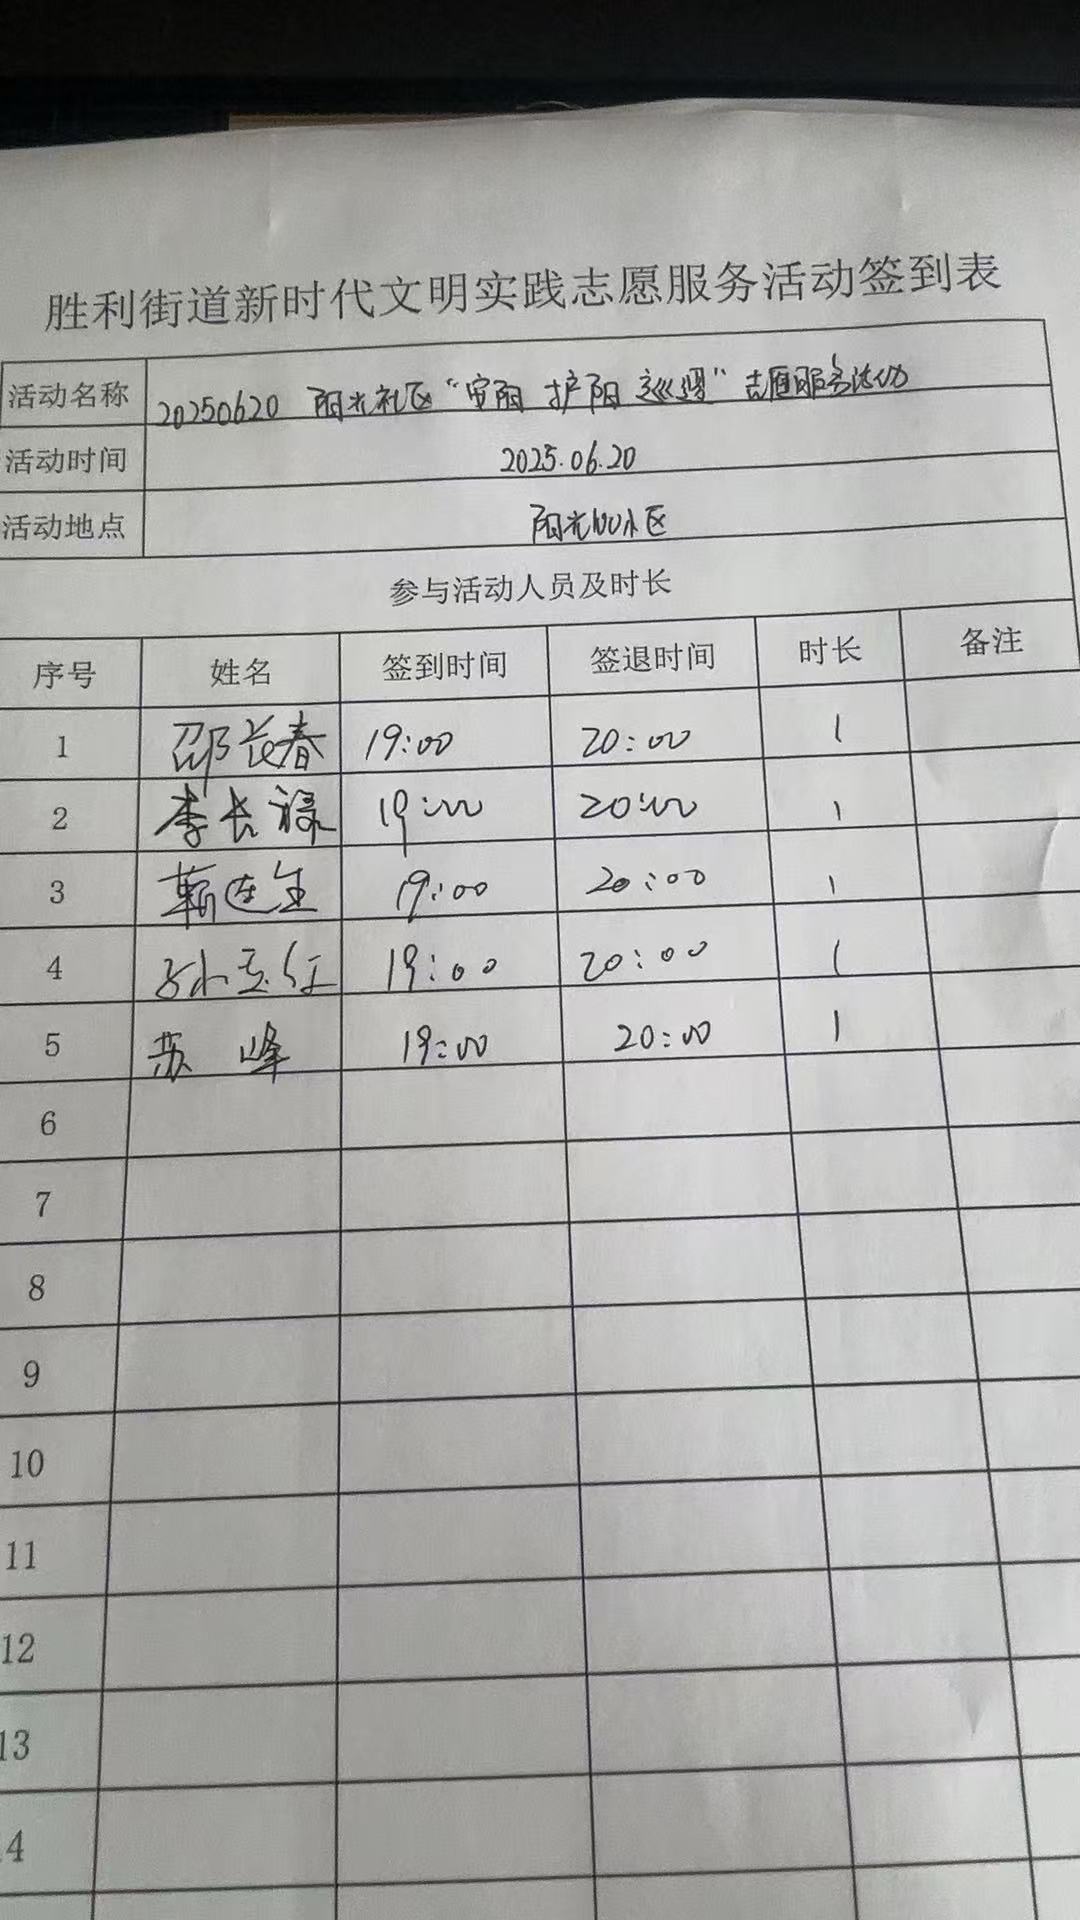 胜利街道新时代文明实践志愿服务活动签到表
活动名称 20250620 阳光社区“安阳 护阳 巡逻”志愿服务活动
活动时间 2025.06.20
活动地点 阳光100小区
参与活动人员及时长
序号 姓名 签到时间 签退时间 时长 备注
1 邵长春 19:00 20:00 1
2 李长禄 19:00 20:00 1
3 靳连生 19:00 20:00 1
4 孙玉红 19:00 20:00 1
5 苏峰 19:00 20:00 1
6
7
8
9
10
11
12
13
14